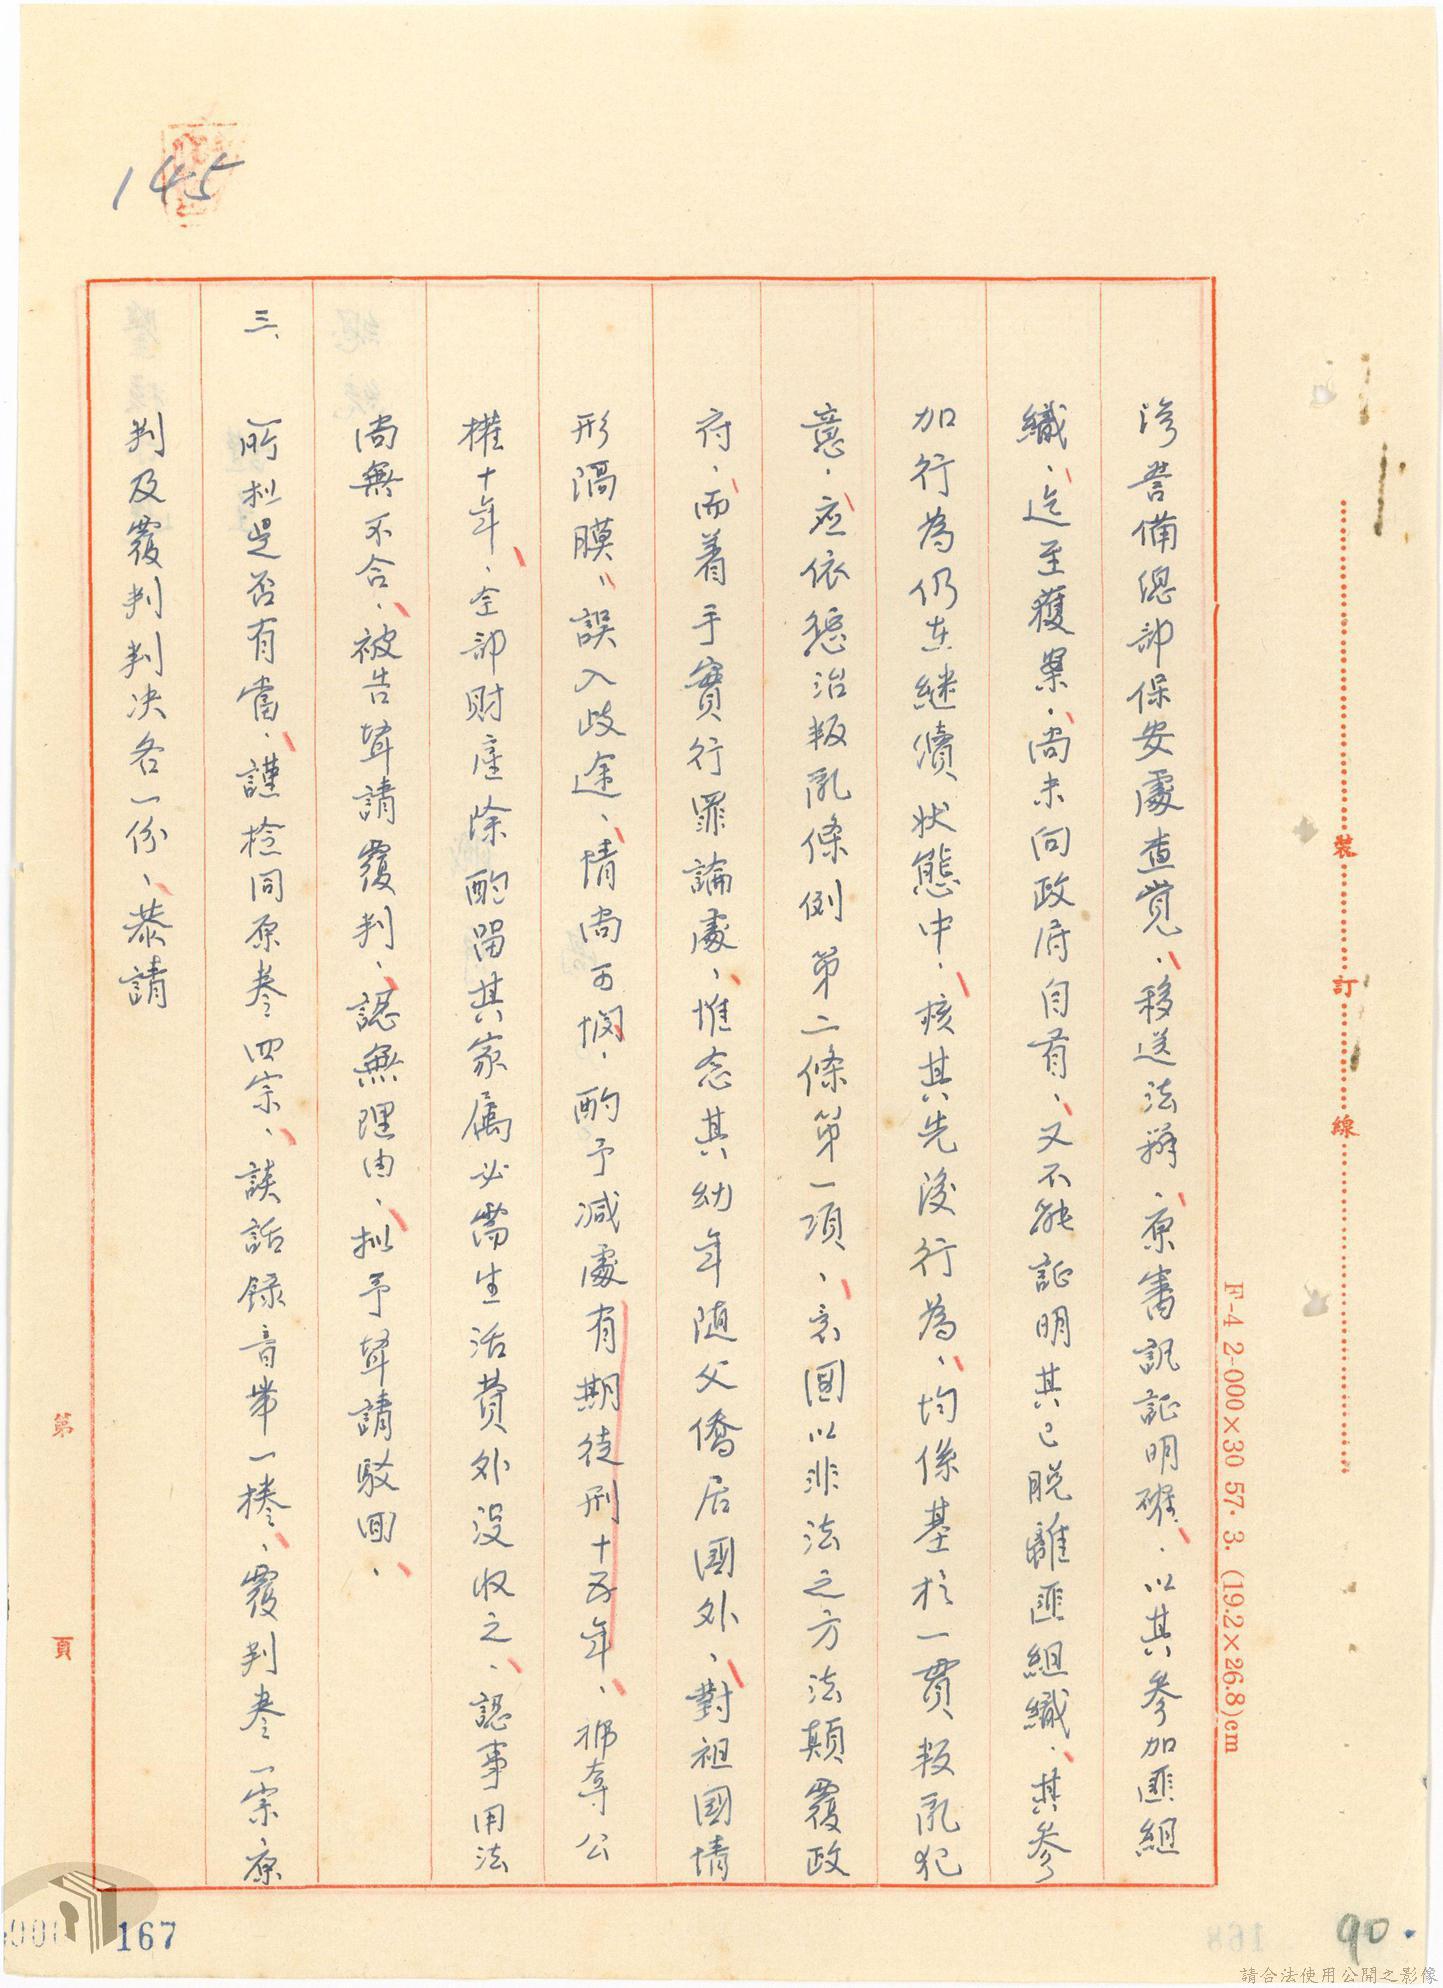 湾警備總部保安處查覚、移送法辦、原審訊証明確、以其參加匪組
織、迄至獲案、尚未向政府自首、又不能証明其已脱離匪組織、其參
加行為仍在継續狀態中、核其先後行為、均係基於一貫叛乱犯
意、应依懲治叛乱條例第二條第一項、意圖以非法之方法顛覆政
府、而着手實行罪論處、惟念其幼年随父僑居國外、對祖國情
形隔膜、誤入歧途、情尚可憫、酌予減處有期徒刑十五年、褫奪公
權十年、全部財產除酌留其家属必需生活費外沒收之、認事用法
尚無不合、被告聲請覆判、認無理由、拟予聲請駁回、
三、所拟是否有當、謹檢同原卷四宗、談話錄音帶一捲、覆判卷一宗原
判及覆判判决各一份、恭請
145
167
90.
裝
訂
線
F-4 2-000×30 57. 3. (19.2×26.8)cm
第
頁
168
請合法使用公開之影像